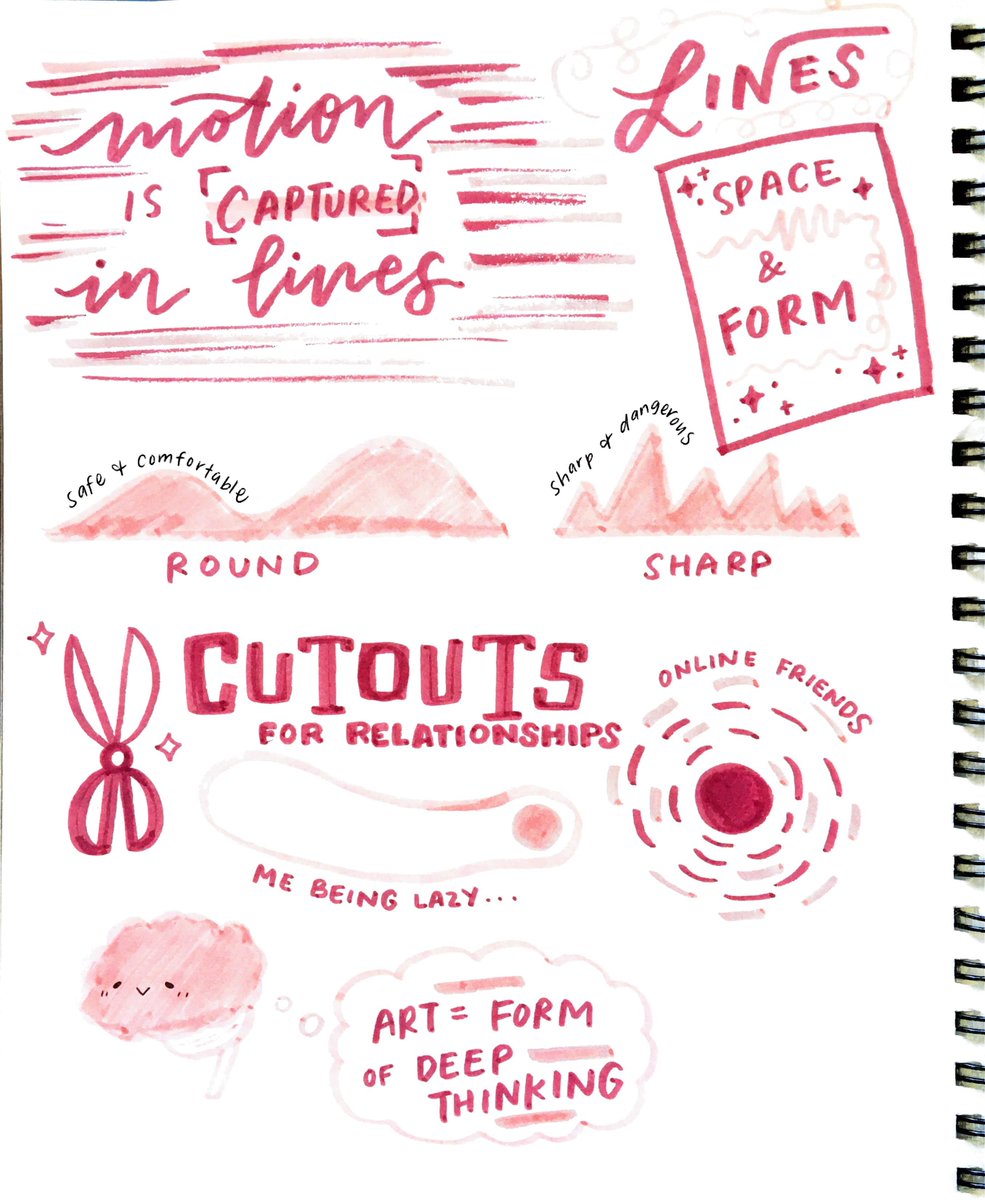 motion
IS CAPTURED
in lines
LINES
SPACE
&
FORM
safe & comfortable
ROUND
sharp & dangerous
SHARP
CUTOUTS
FOR RELATIONSHIPS
ONLINE FRIENDS
ME BEING LAZY...
ART = FORM
OF DEEP
THINKING